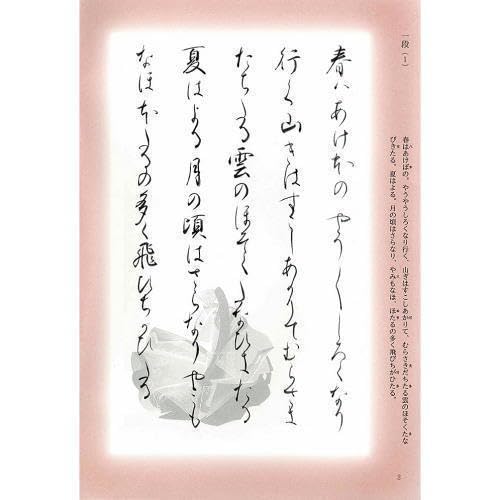 一段(1)
春はあけぼの。やうやうしろくなり行く、山ぎはすこしあかりて、むらさきだちたる雲のほそくたな
びきたる。夏はよる。月の頃はさらなり、やみもなほ、ほたるの多く飛びちがひたる。
春はあけほの やう〱しろくなり
行く山きはすこしあかりてむらさき
たちたる雲のほそくたなひきたる
夏はよる 月の頃はさらなり やみも
なほほたるの多く飛ひちかひたる
3